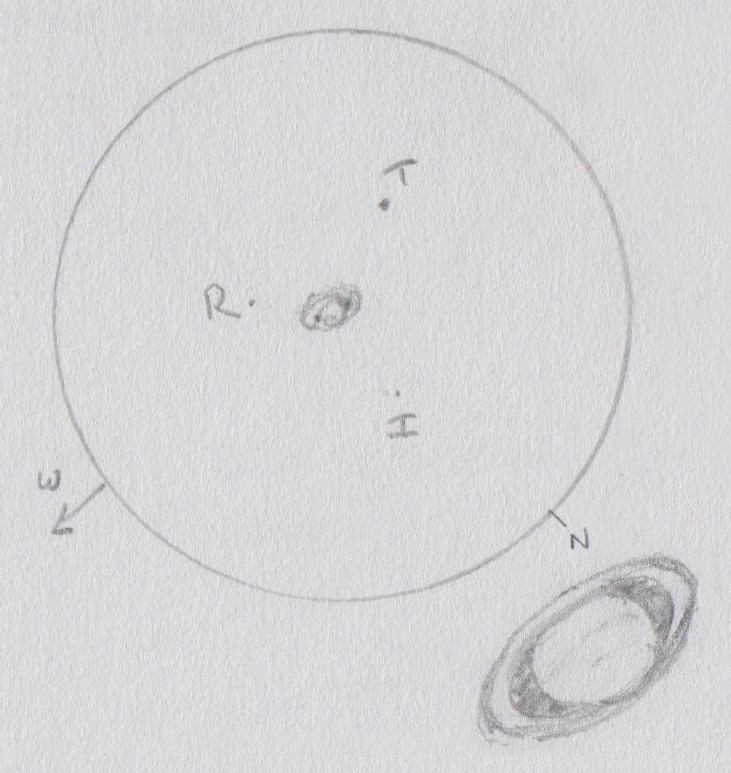 T
R
H
W
N